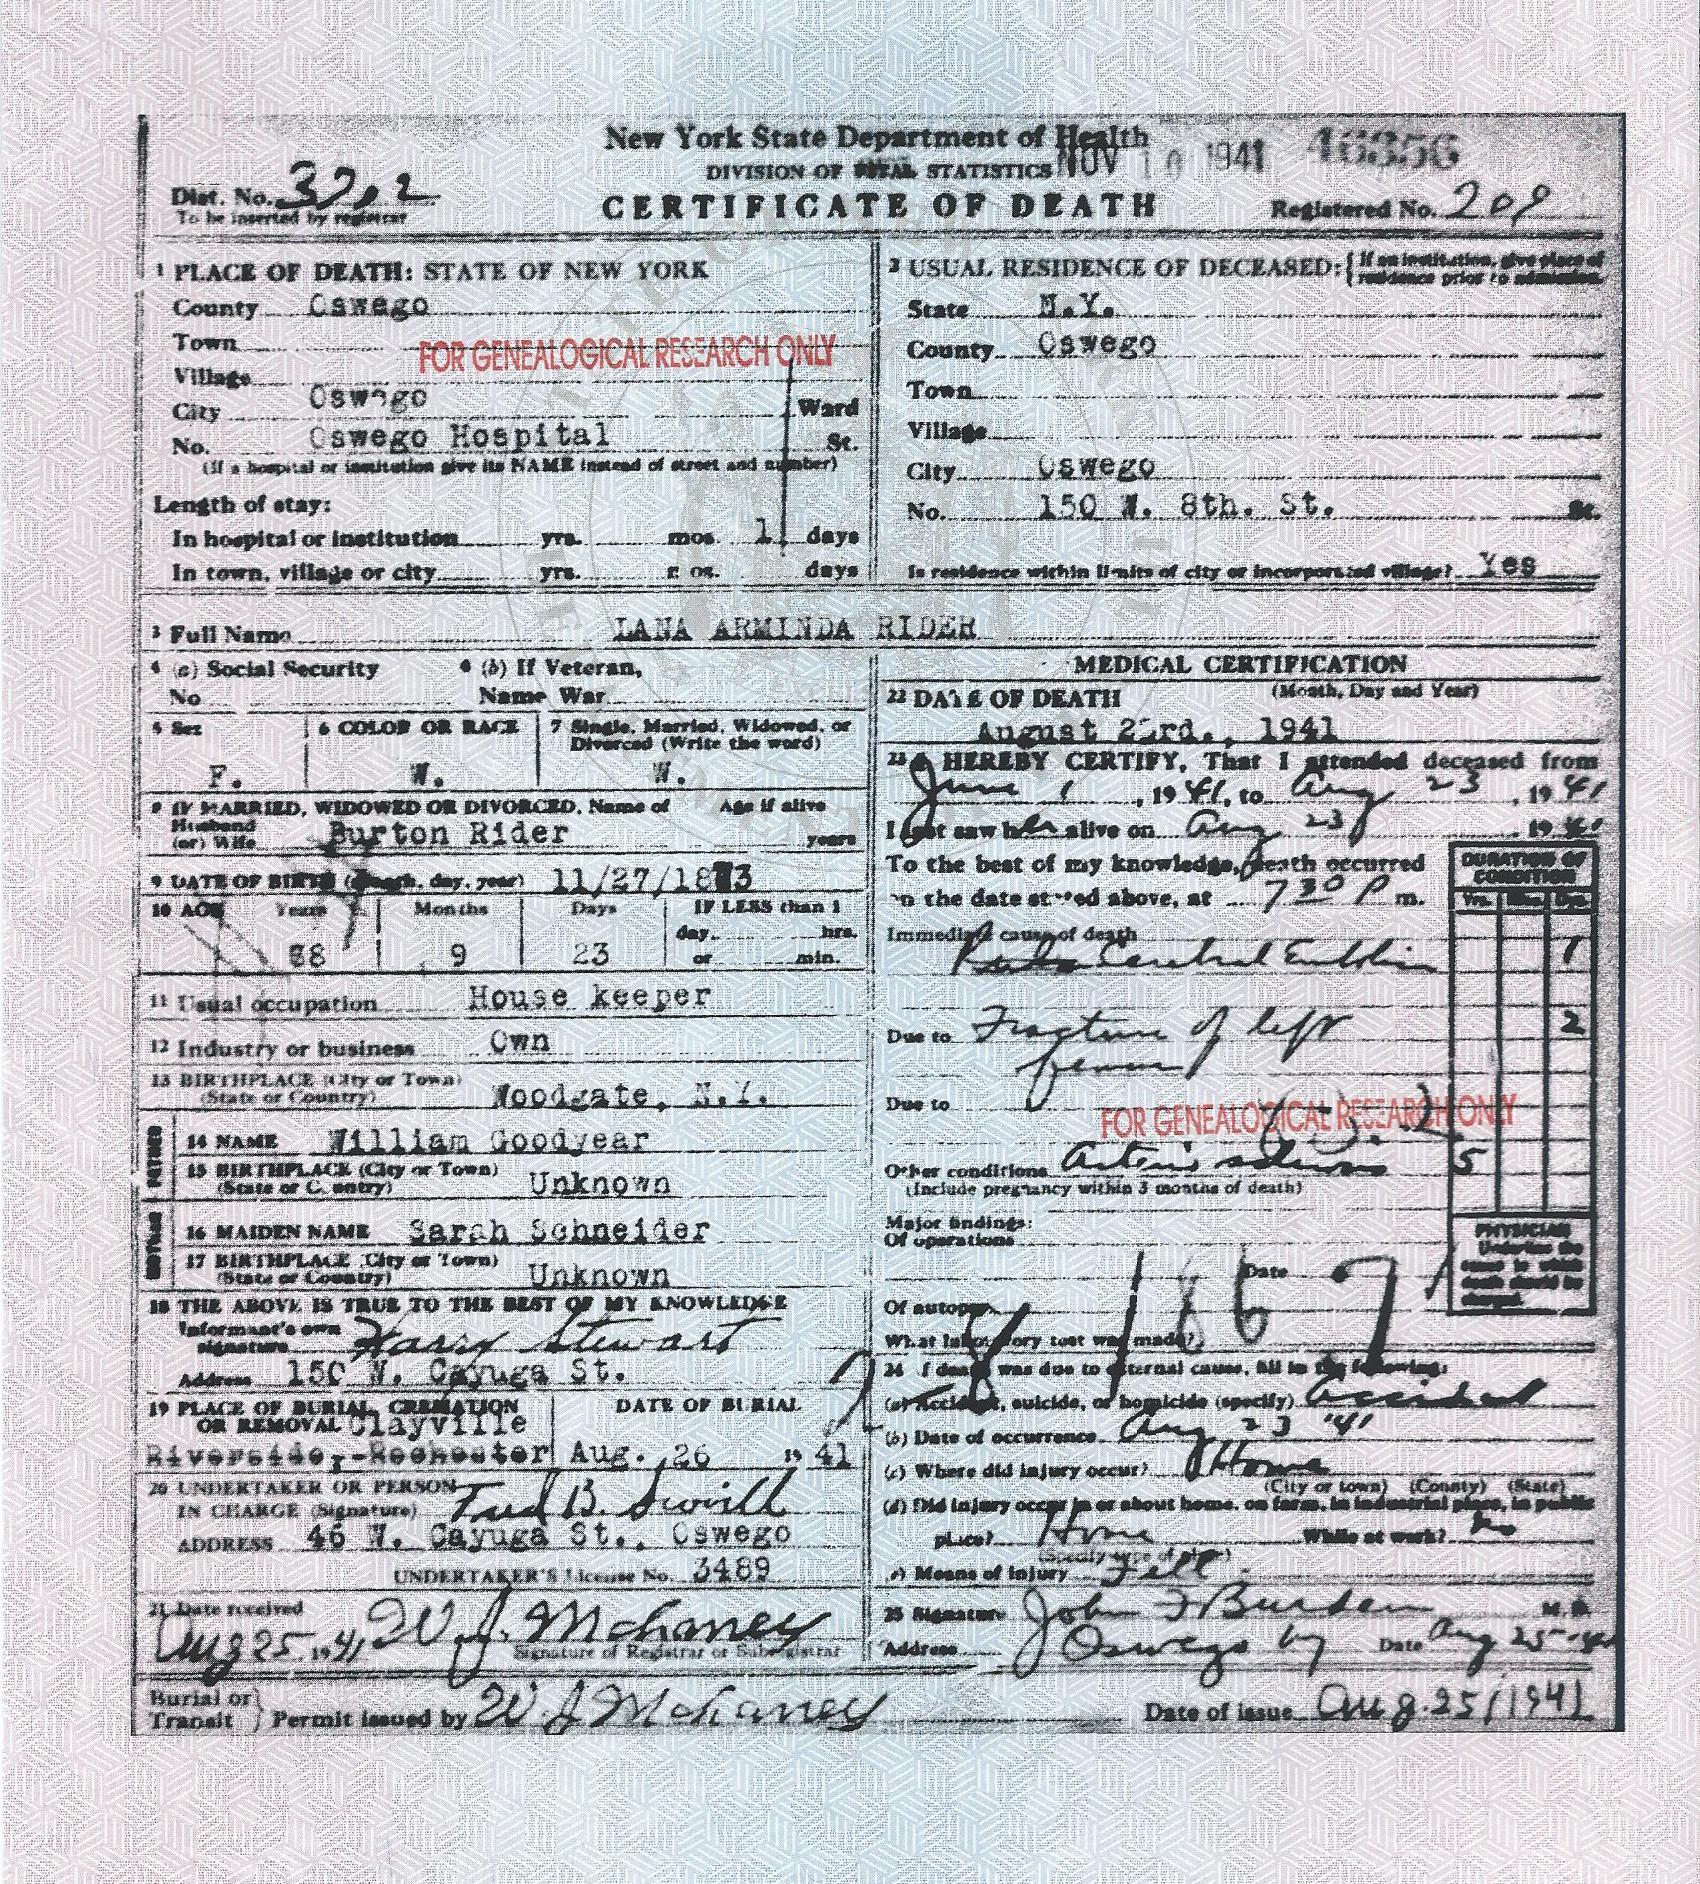 New York State Department of Health
DIVISION OF VITAL STATISTICS NOV 10 1941 46356
Dist. No. 3702
To be inserted by registrar
CERTIFICATE OF DEATH
Registered No. 209
1 PLACE OF DEATH: STATE OF NEW YORK
County Oswego
Town
FOR GENEALOGICAL RESEARCH ONLY
Village
City Oswego Ward
No. Oswego Hospital St.
(If a hospital or institution give its NAME instead of street and number)
Length of stay:
In hospital or institution yrs. mos. 1 days
In town, village or city yrs. mos. days
2 USUAL RESIDENCE OF DECEASED: {If an institution, give place of residence prior to admission.
State N.Y.
County Oswego
Town
Village
City Oswego
No. 150 W. 8th. St. St.
Is residence within limits of city or incorporated village? Yes
3 Full Name LANA ARMINDA RIDER
4 (a) Social Security No
4 (b) If Veteran, Name War
5 Sex F.
6 COLOR OR RACE W.
7 Single, Married, Widowed, or Divorced (Write the word) W.
8 IF MARRIED, WIDOWED OR DIVORCED, Name of Age if alive
Husband (or) Wife Burton Rider years
9 DATE OF BIRTH (month, day, year) 11/27/1873
10 AGE Years Months Days IF LESS than 1
day hrs.
9 23 or min.
11 Usual occupation House keeper
12 Industry or business Own
13 BIRTHPLACE (City or Town)
(State or Country) Woodgate, N.Y.
FATHER
14 NAME William Goodyear
15 BIRTHPLACE (City or Town)
(State or Country) Unknown
MOTHER
16 MAIDEN NAME Sarah Schneider
17 BIRTHPLACE (City or Town)
(State or Country) Unknown
18 THE ABOVE IS TRUE TO THE BEST OF MY KNOWLEDGE
Informant's own signature Harry Stewart
Address 150 W. Cayuga St.
19 PLACE OF BURIAL, CREMATION OR REMOVAL Clayville
Riverside, Rochester
DATE OF BURIAL
Aug. 26 1941
20 UNDERTAKER OR PERSON
IN CHARGE (Signature) Fred B.
ADDRESS 46 W. Cayuga St., Oswego
UNDERTAKER'S License No. 3489
21 Date received
Aug 25 1941 W J Mohaney
Signature of Registrar or Subregistrar
MEDICAL CERTIFICATION
22 DATE OF DEATH (Month, Day and Year)
August 23rd., 1941
23 I HEREBY CERTIFY, That I attended deceased from
June 1, 1941, to Aug 23, 1941
I last saw her alive on Aug 23, 1941
To the best of my knowledge, death occurred
on the date stated above, at 7 30 P m.
DURATION OF CONDITION
Yrs. Mos. Dys.
Immediate cause of death
1
Due to Fracture of left 2
femur
Due to
FOR GENEALOGICAL RESEARCH ONLY
Other conditions 5
(Include pregnancy within 3 months of death)
Major findings:
Of operations
Date
Of autopsy
What laboratory test was made?
186
PHYSICIAN
Underline the cause to which death should be charged.
24 If death was due to external cause, fill in the following:
(a) Accident, suicide, or homicide (specify) Accident
(b) Date of occurrence Aug 23 '41
(c) Where did injury occur? Home
(City or town) (County) (State)
(d) Did injury occur in or about home, on farm, in industrial place, in public
place? Home While at work? No
(Specify type of place)
(e) Means of injury Fell
25 Signature John F Burden M.D.
Address Oswego NY Date Aug 25 '41
Burial or Transit } Permit issued by W J Mohaney
Date of issue Aug. 25/1941